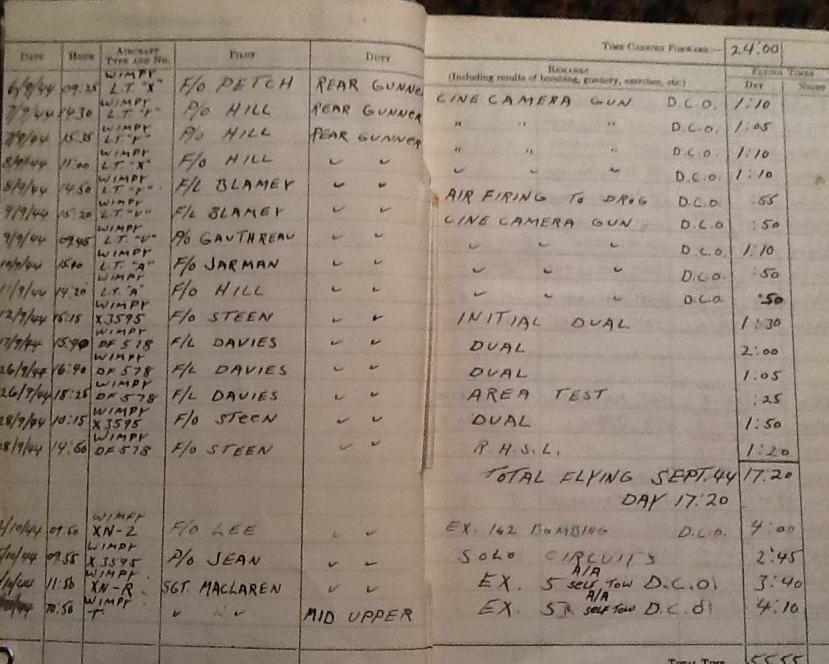 TIME CARRIED FORWARD:— 24:00
DATE HOUR AIRCRAFT TYPE AND NO. PILOT DUTY REMARKS (Including results of bombing, gunnery, exercises, etc.) FLYING TIMES DAY NIGHT
6/9/44 09.25 WIMPY L.T. "X" F/O PETCH REAR GUNNER CINE CAMERA GUN D.C.O. 1:10
7/9/44 14.30 WIMPY L.T. P/O HILL REAR GUNNER " " " D.C.O. 1:05
15.35 WIMPY L.T. P/O HILL REAR GUNNER " " " D.C.O. 1:10
8/9/44 11:00 WIMPY L.T. "X" F/O HILL " " " " " D.C.O. 1:10
8/9/44 14.50 WIMPY L.T. F/L BLAMEY " " AIR FIRING TO DROG D.C.O. :55
9/9/44 15:20 WIMPY L.T. "V" F/L BLAMEY " " CINE CAMERA GUN D.C.O :50
9/9/44 09.45 WIMPY L.T. "U" P/O GAUTHREAU " " " " " D.C.O. 1:10
10/9/44 WIMPY L.T. "A" F/O JARMAN " " " " " D.C.O. :50
11/9/44 14:20 WIMPY L.T. "A" F/O HILL " " " " " D.C.O. :50
12/9/44 15:15 WIMPY X3595 F/O STEEN " " INITIAL DUAL 1:30
15.40 WIMPY DF 578 F/L DAVIES " " DUAL 2:00
26/9/44 16:40 WIMPY DF 578 F/L DAVIES " " DUAL 1.05
26/9/44 18:25 WIMPY DF 578 F/L DAVIES " " AREA TEST :25
28/9/44 10:15 WIMPY X3595 F/O STEEN " " DUAL 1:50
28/9/44 14:50 WIMPY DF 578 F/O STEEN " " R.H.S.L. 1:20
TOTAL FLYING SEPT. 44 17:20
DAY 17:20
/10/44 09.50 WIMPY XN-Z F/O LEE " " EX. 162 BOMBING D.C.O. 4:00
/10/44 09.55 WIMPY X3595 P/O JEAN " " SOLO CIRCUITS 2:45
11:50 WIMPY XN-R SGT. MACLAREN " " EX. 5 A/A SELF TOW D.C.O. 3:40
10:50 WIMPY " " " MID UPPER EX. A/A SELF TOW D.C.O. 4:10
TOTAL TIME 55.55